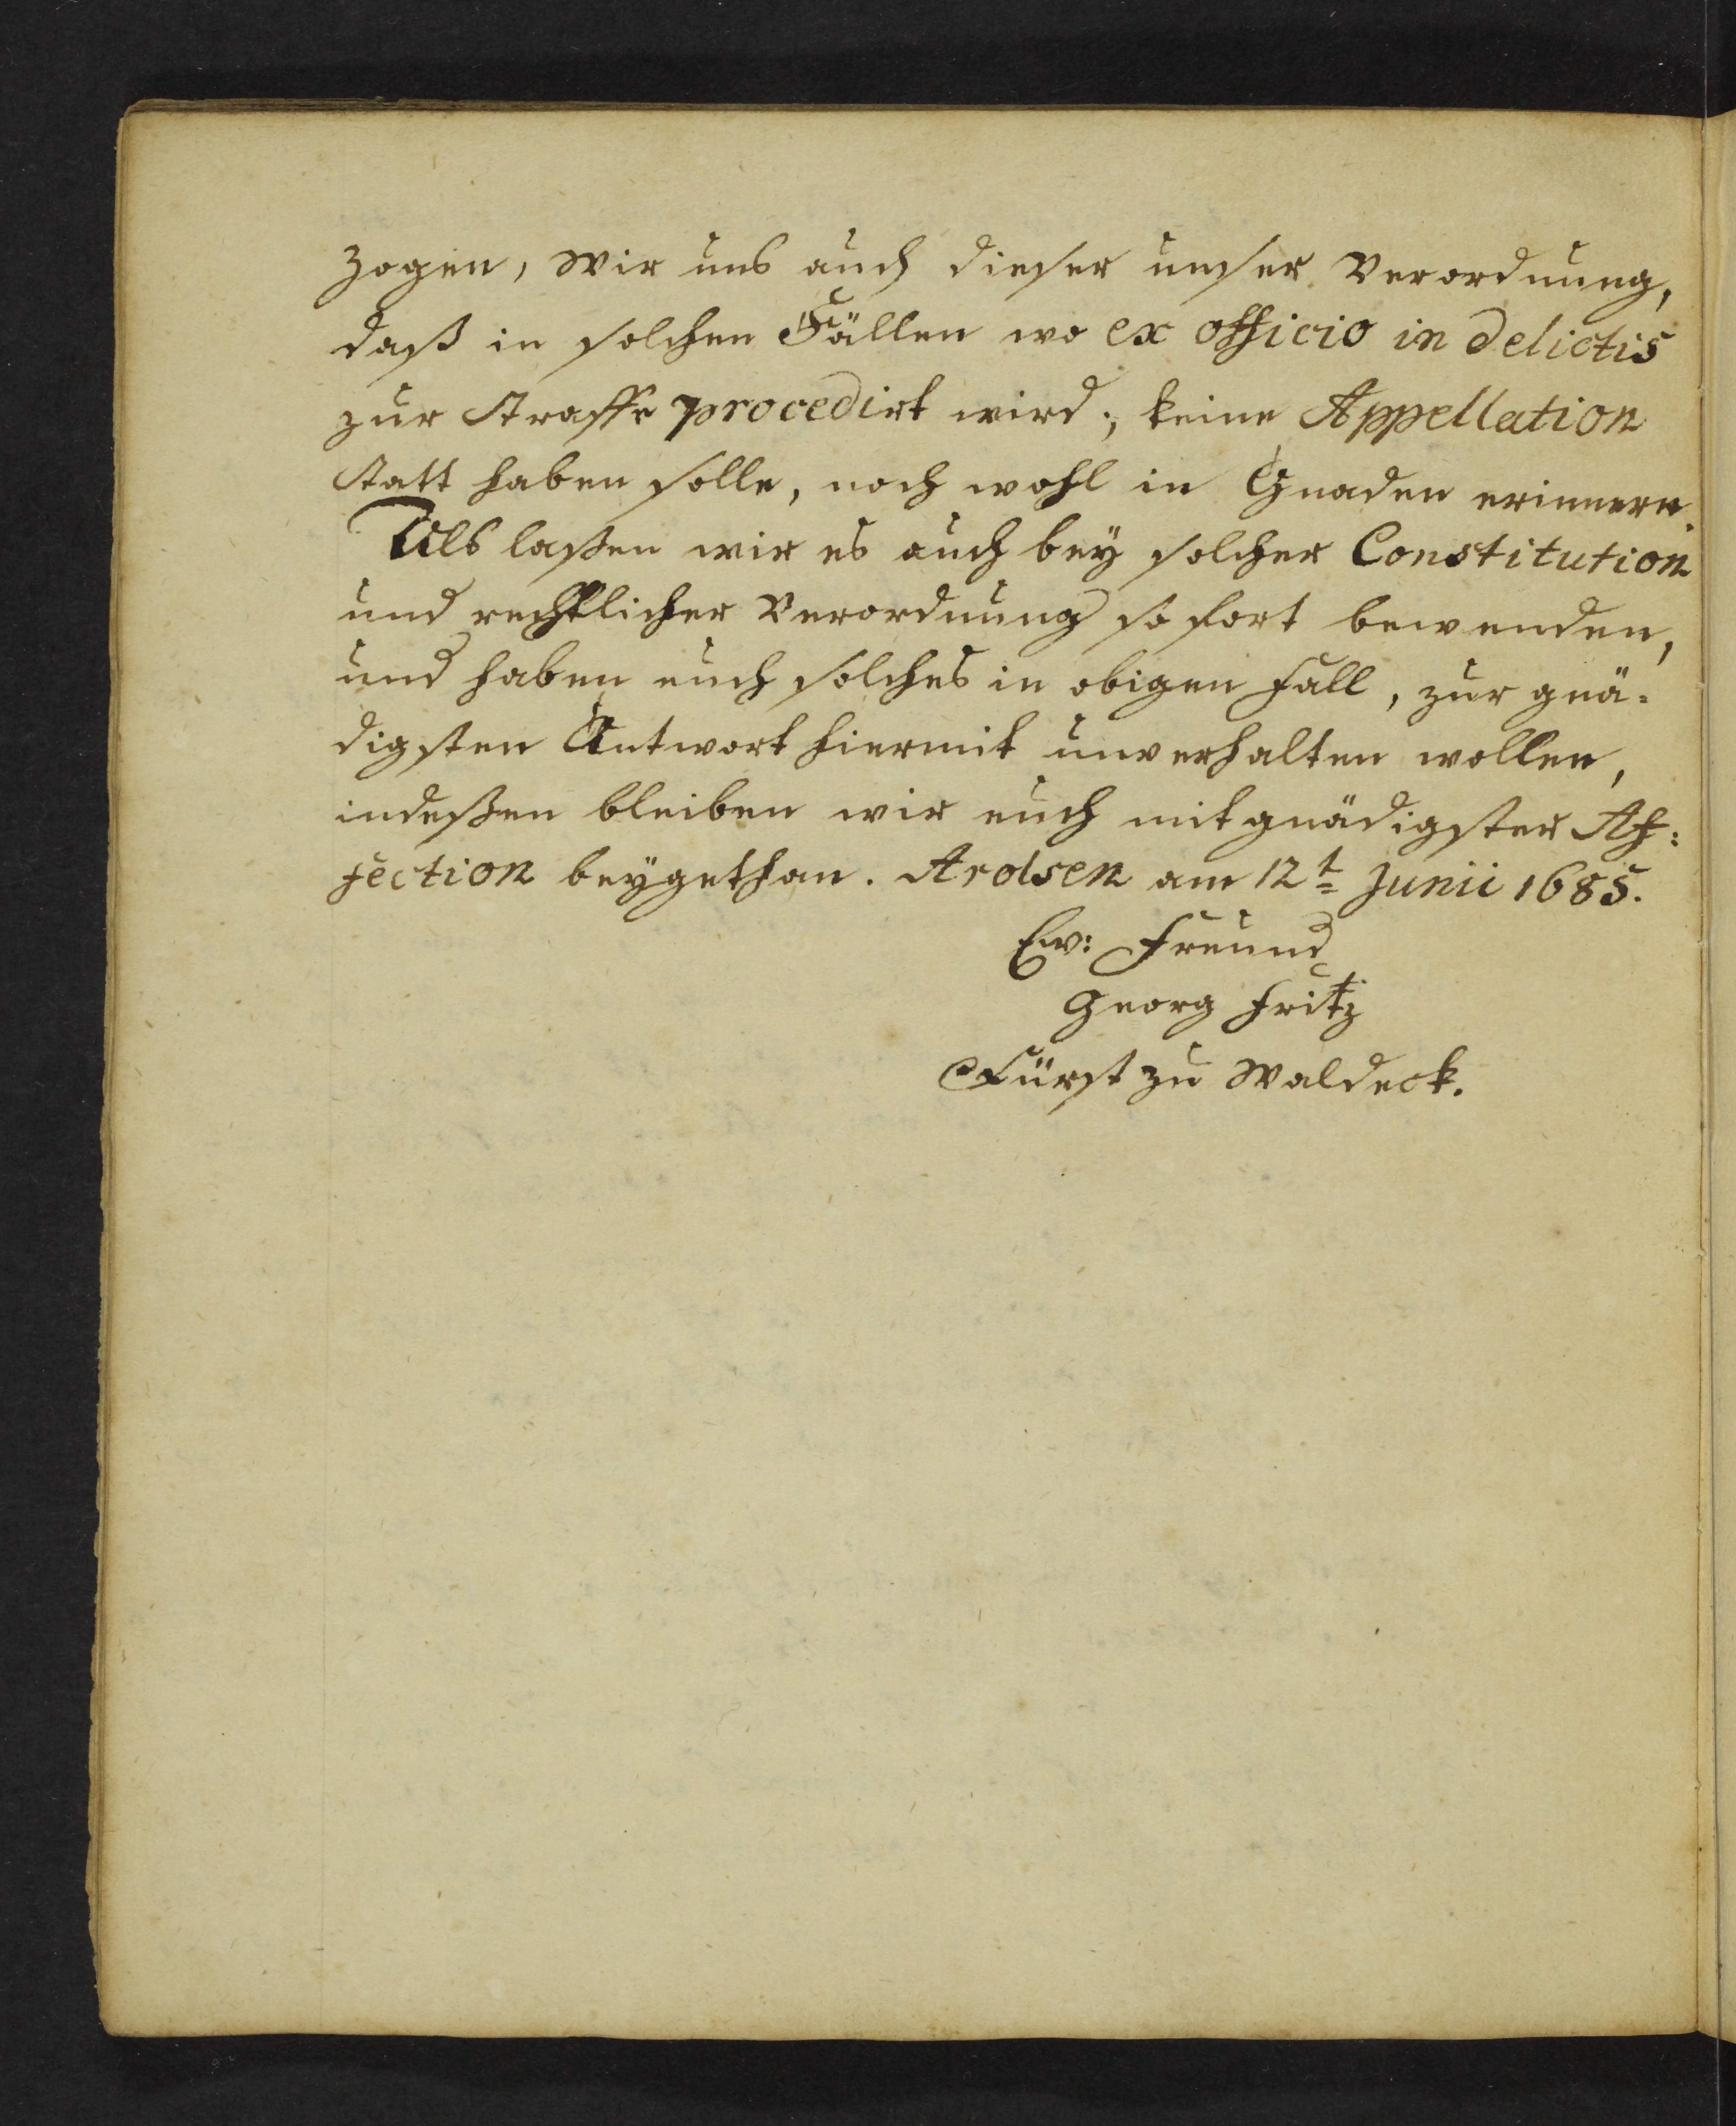 zogen, Wir uns auch dieser unser Verordnung,
daß in solchen Fällen wo ex officio in delictis
zur Straffe procedirt wird; keine Appellation
statt haben solle, noch wohl in Gnaden erinnern.
Als laßen wir es auch bey solcher Constitution
und rechtlicher Verordnung so fort bewenden,
und haben euch solches in obigen Fall, zur gnä-
digsten Antwort hiermit unverhalten wollen,
indeßen bleiben wir euch mit gnädigster Af:
fection beygethan. Arolsen am 12t Junii 1685.
Ew: Freund
Georg Fritz
Fürst zu Waldeck.